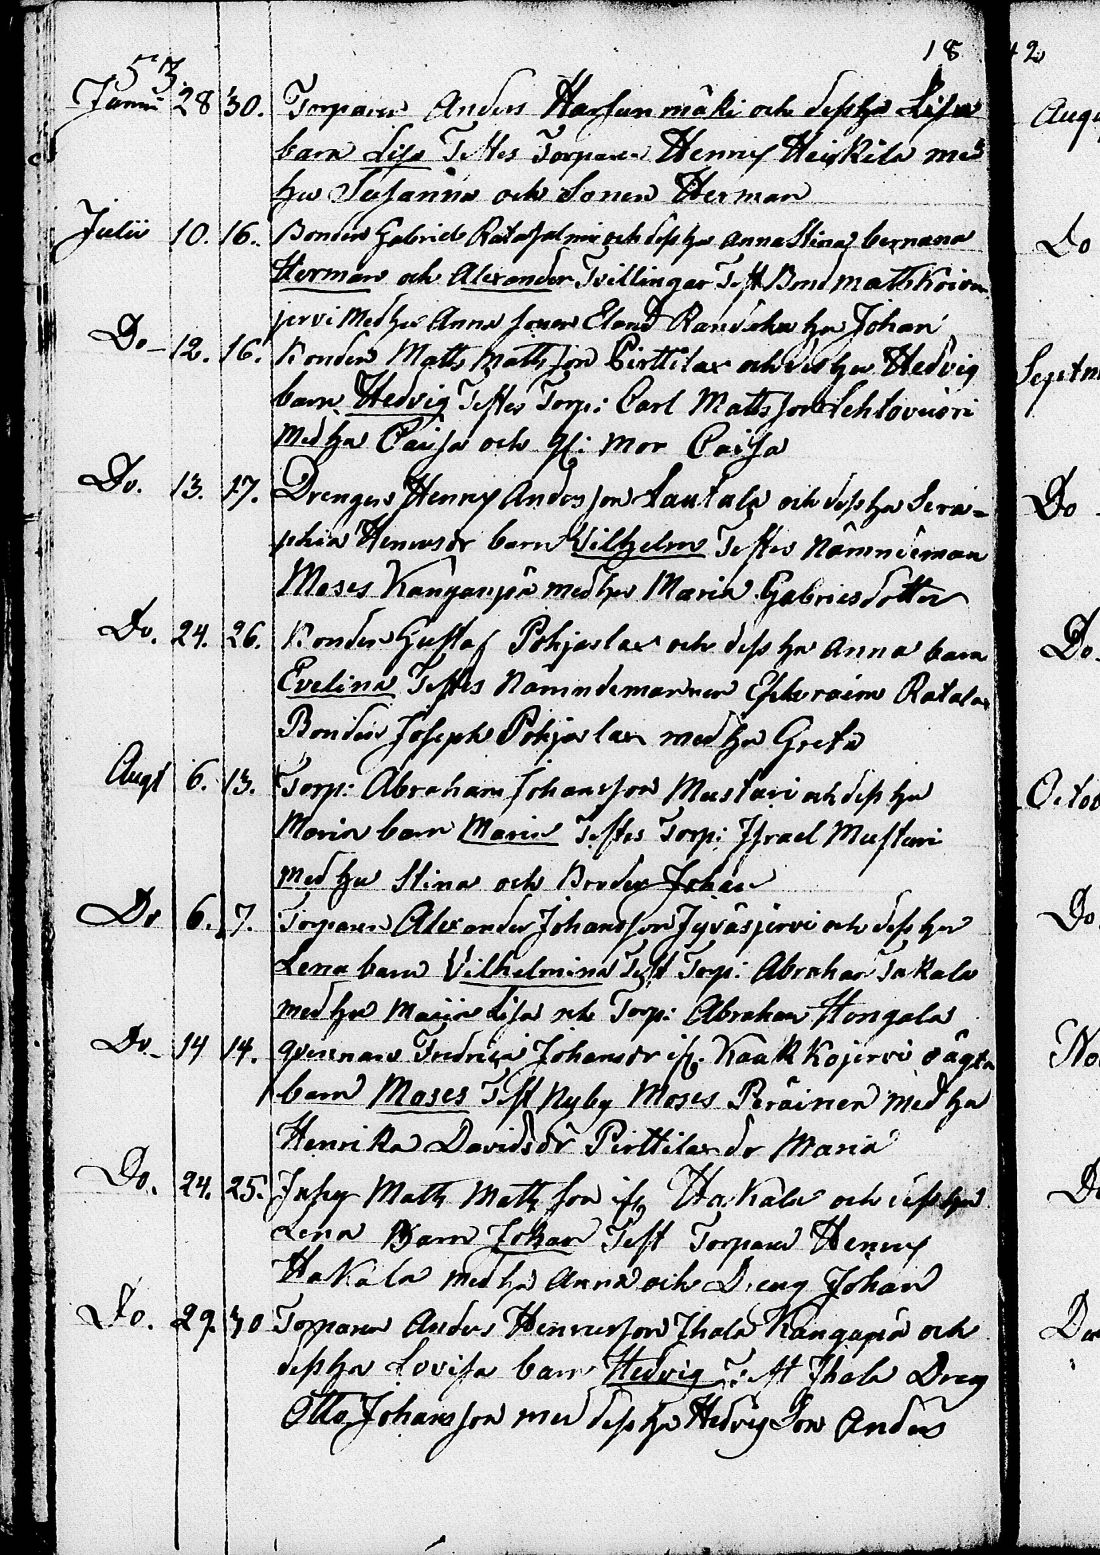 18
42
53
Junii 28 30. Torparen Anders Harjunmäki och dess hu Lisa
barn Lisa Testes Torparen Henny Heikkilä med
hu Susanna och Sonen Herman
Julii 10. 16. Bonden Gabriel Ratasalmi och dess hu Anna Stina barnena
Herman och Alexander Tvillingar Test Bond Matts Koivu
jervi Med hu Anna sonen hu Johan
Do 12. 16. Bonden Matts Mattsson Pirttilax och dess hu Hedvig
barn Hedvig Testes Torp: Carl Mattsson Lehtovuori
Med hu Caisa och Mor Caisa
Do. 13. 17. Drengen Henny Andersson Lautala och dess hu Sera-
phia Henricsdr barn Vilhelm Testes Nämndeman
Moses Kanganpä med hu Maria Gabrielsdotter
Do. 24. 26. Bonden Gustaf Pohjaslax och dess hu Anna barn
Evelina Testes Nämndemannen Ephraim Ratalax
Bonden Joseph Pohjaslax med hu Greta
Augt 6. 13. Torp: Abraham Johansson Mustari och dess hu
Maria barn Maria Testes Torp: Israel Mustari
Med hu Stina och Broder Johan
Do 6. 7. Torparen Alexander Johansson Jyväsjervi och dess hu
Lena barn Vilhelmina Test Torp: Abraham Takala
med hu Maria Lisa och Torp: Abraham Hongala
Do 14 14. Fredrica Johansdr Kaakkojervi oägta
barn Moses Test Nyby Moses Peräinen med hu
Henrika Davidsdr Pirttilax dr Maria
Do. 24. 25. Matts Mattsson Hakala och dess hu
Lena Barn Johan Test Torparen Henny
Hakala med hu Anna och Dreng Johan
Do. 29. 30 Torparen Anders Henricsson Ihala Kangapä och
dess hu Lovisa barn Hedvig Test Ihala Dreng
Otto Johansson med dess hu Hedvig Son Anders
Augu
Do
Septem
Do
Do.
Octob
Do
No
Do